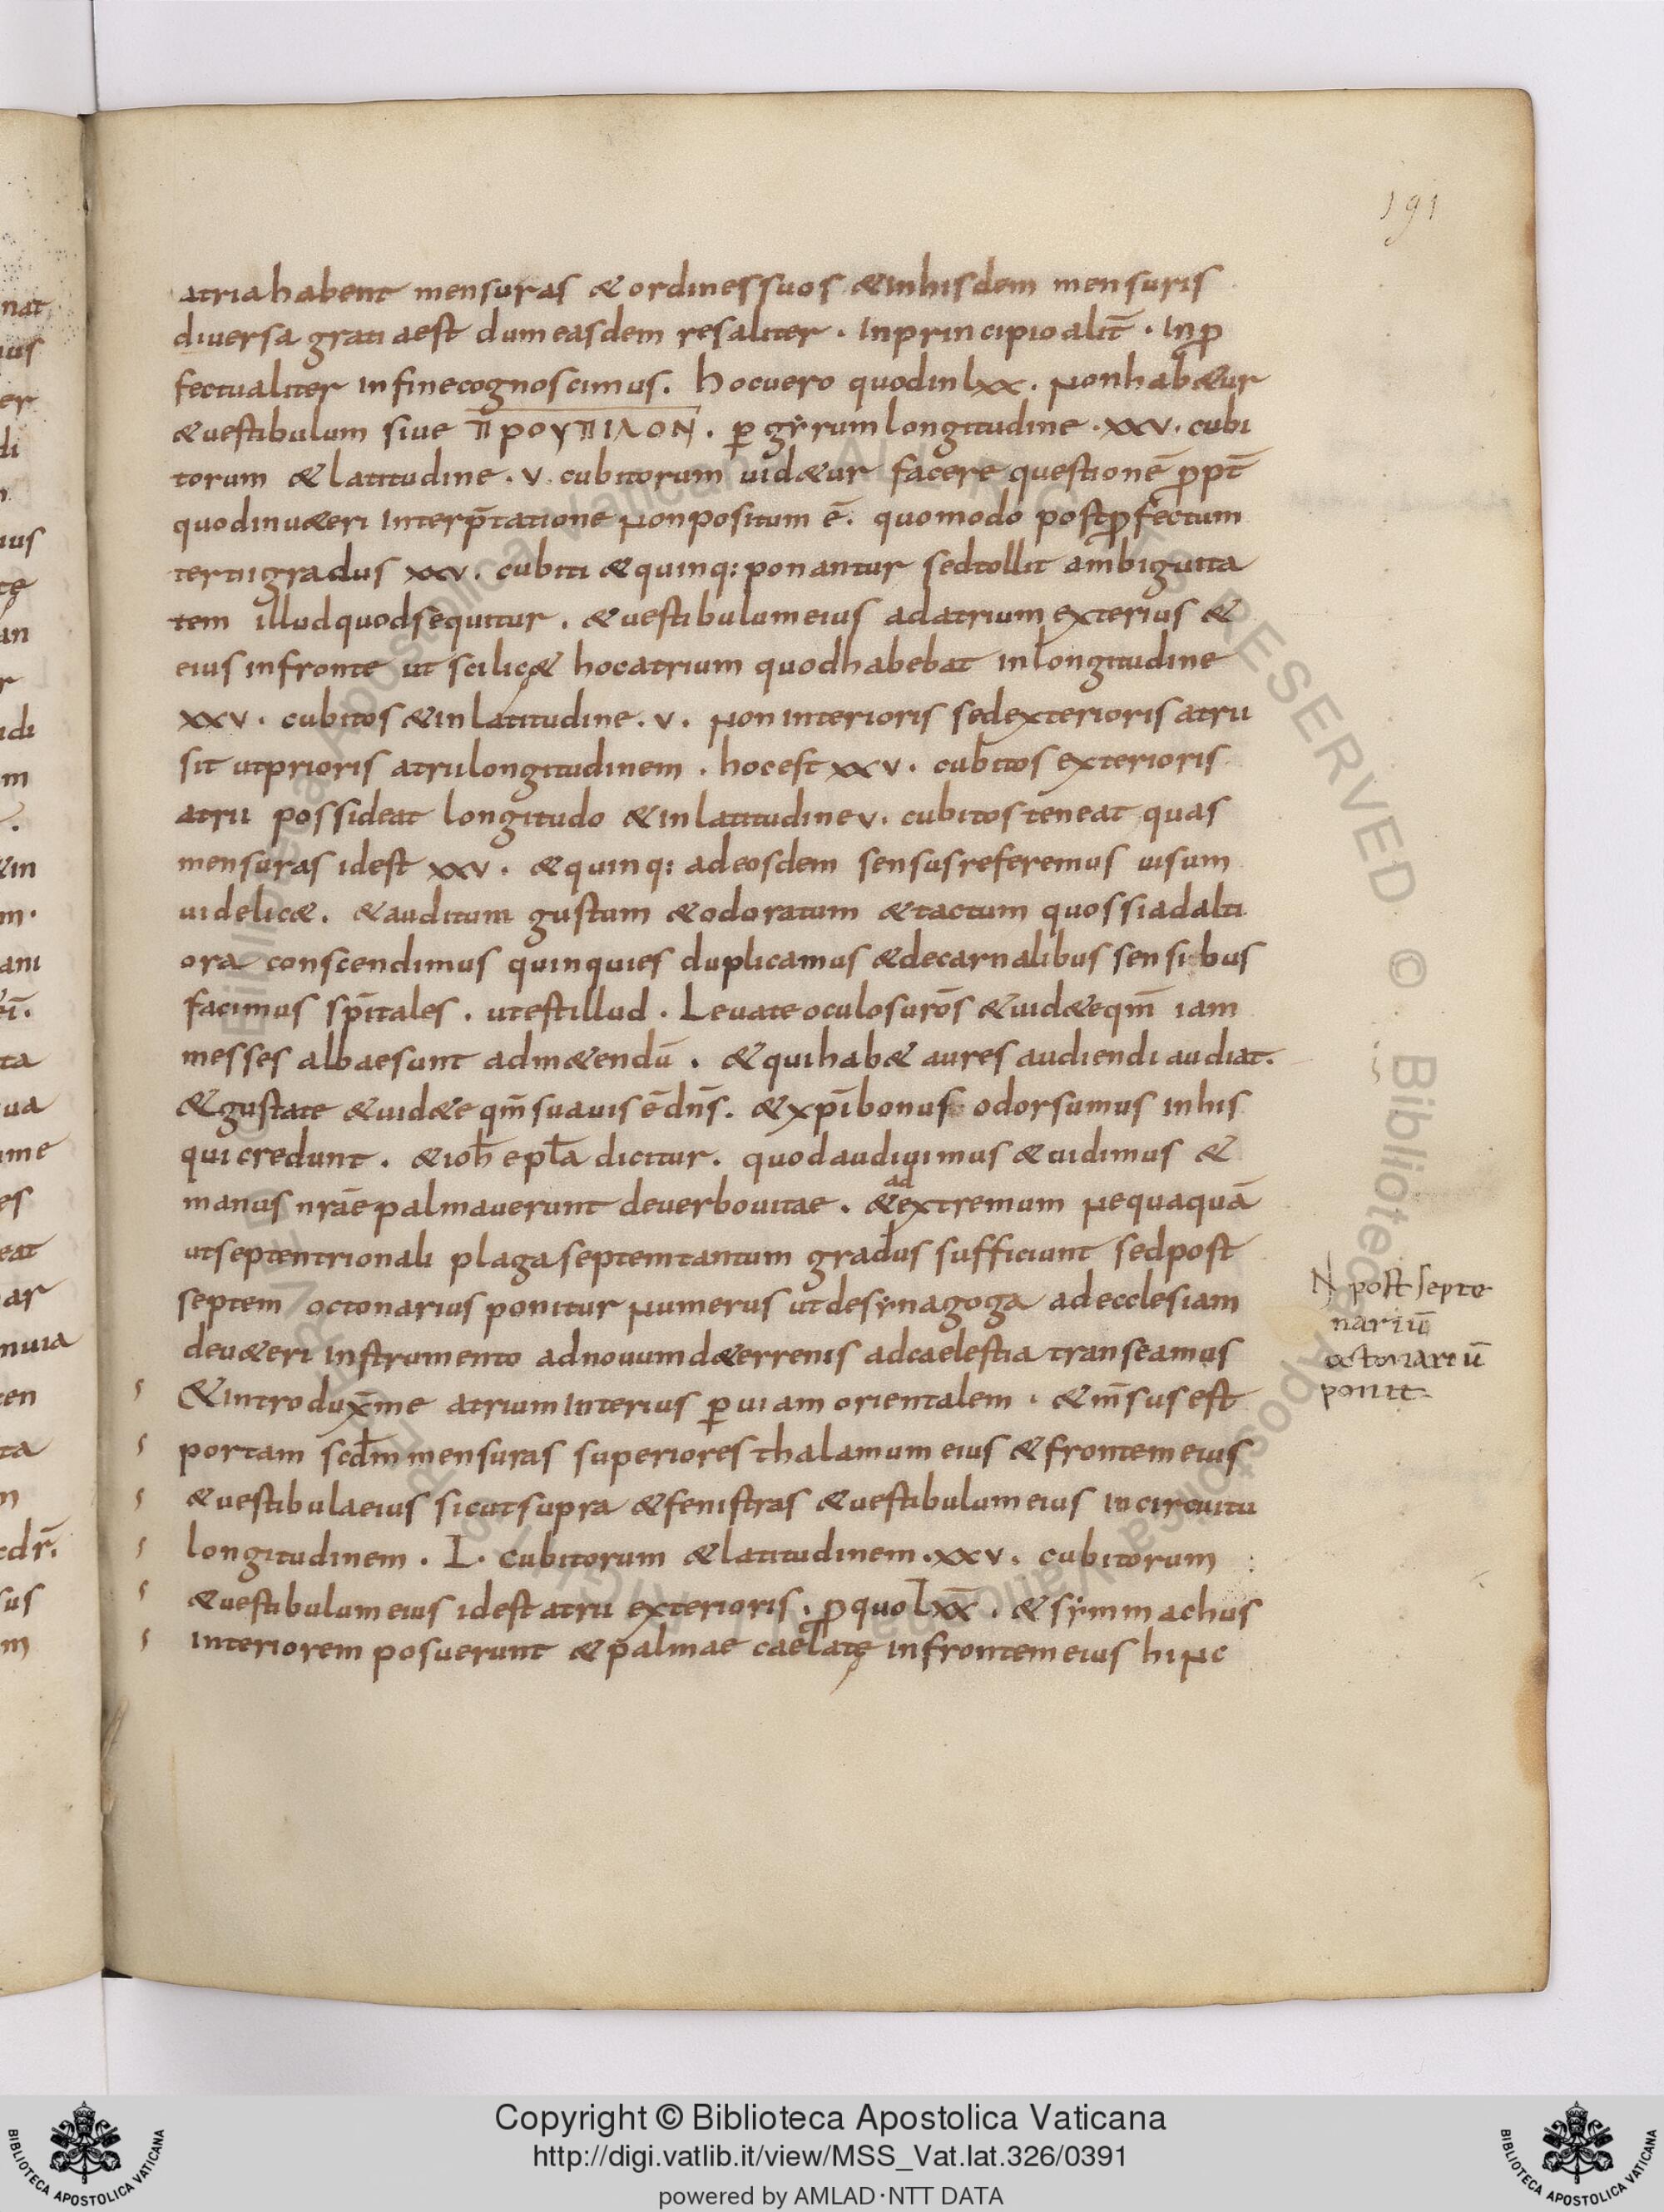 191
atria habent mensuras & ordines suos & in hisdem mensuris
diversa grati aest dum easdem res aliter . In principio alit̄ . In ꝓ
fectu aliter in fine cognoscimus . hoc uero quod in lxx . non hab&ur
& uestibulum siue ΠΡΟΥΠΙΛΟΝ . ꝑ gyrum longitudine . xxv . cubi
torum & latitudine . v . cubitorum uid&ur facere questionē ꝓpt̄
quod in u&eri interp̄tatione non positum ē . quomodo post ꝓfectum
terni gradus xxv . cubiti & quinq: ponantur sed tollit ambiguita
tem illud quod sequitur . & uestibulum eius ad atrium exterius &
eius in fronte ut scilic& hoc atrium quod habebat in longitudine
xxv . cubitos & in latitudine . v . non interioris sed exterioris atrii
sit ut prioris atrii longitudinem . hoc est xxv . cubitos exterioris
atrii possideat longitudo & in latitudine v . cubitos teneat quas
mensuras id est xxv . & quinq: ad eosdem sensus referemus uisum
uidelic& . & auditum gustum & odoratum & tactum quos si ad alti
ora conscendimus quinquies duplicamus & de carnalibus sensibus
facimus sp̄itales . ut est illud . Leuate oculos urōs & uid&e qm̄ iam
messes albae sunt ad m&endū . & qui hab& aures audiendi audiat .
& gustate & uid&e qm̄ suauis ē dn̄s . & xp̄i bonus odor sumus in his
qui credunt . & ioh̄ epl̄a dicitur . quod audiuimus & uidimus &
manus nrāe palmauerunt de uerbo uitae . & ad extremum nequaquā
ut septentrionali plaga septem tantum gradus sufficiunt sed post
septem octonarius ponitur numerus ut de synagoga ad ecclesiam
de u&eri instrumento ad nouum d& terrenis ad caelestia transeamus
& introdux̄ me atrium interius ꝑ uiam orientalem . & m̄sus est
portam scd̄m mensuras superiores thalamum eius & frontem eius
& uestibula eius sicut supra & fenistras & uestibulum eius in circuitu
longitudinem . L . cubitorum & latitudinem . xxv . cubitorum
& uestibulum eius id est atrii exterioris . ꝓ quo Lxx̄ . & symmachus
interiorem posuerunt & palmae caelatę in frontem eius hinc
N post septe
nariū
octonariū
ponit
Copyright © Biblioteca Apostolica Vaticana
http://digi.vatlib.it/view/MSS_Vat.lat.326/0391
powered by AMLAD·NTT DATA
BIBLIOTECA APOSTOLICA VATICANA
BIBLIOTECA APOSTOLICA VATICANA